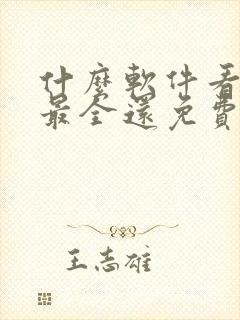 什麼軟件看
最全還免費
王志雄